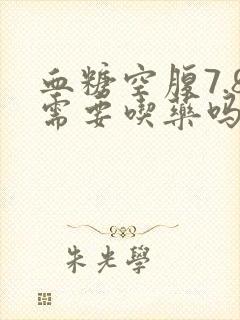 血糖空腹7.8
需要喫藥吗
朱光學